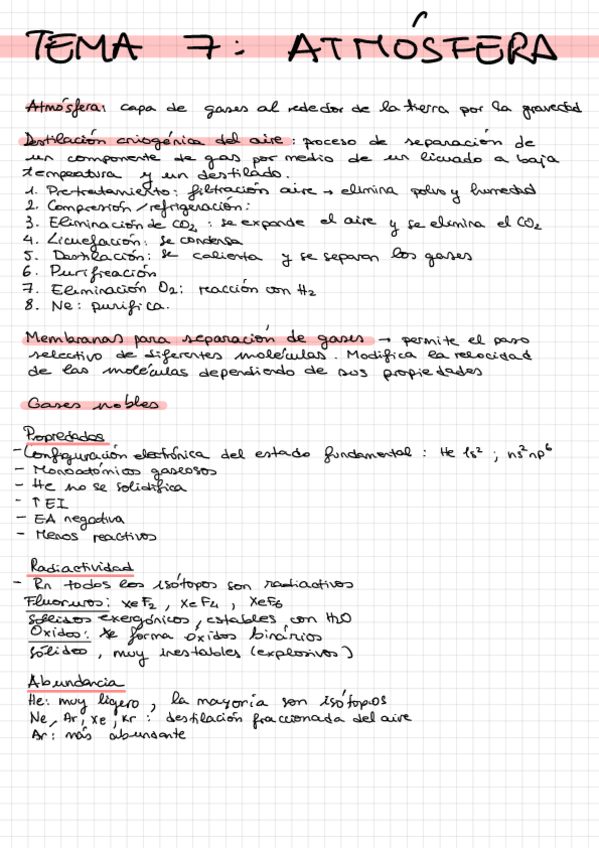 TEMA 7: ATMÓSFERA
Atmósfera: capa de gases al rededor de la tierra por la gravedad
Destilación criogénica del aire: poceso de separación de
un componente de gas por medio de un licuado a baja
tempeatura y un destilado.
1. Pretratamiento: filtración aire → elimina polvo y humedad
2. Compresión/refrigeración:
3. Eliminación de CO2: se expande el aire y se elimina el CO2
4. Licuefación: se condensa
5. Destilación: se calienta y se separan los gases
6. Purificación
7. Eliminación O2: reacción con H2
8. Ne: purifica.
Membranas para separación de gases → permite el paso
selectivo de diferentes moléculas. Modifica la velocidad
de las moléculas dependiendo de sus propiedades
Gases nobles
Propiedades
- Configuración electrónica del estado fundamental: He 1s² ; ns²np⁶
- Monoatómicos gaseosos
- He no se solidifica
- ↑EI
- EA negativa
- Menos reactivos
Radiactividad
- Rn todos los isótopos son radiactivos
Fluoruros: XeF2, XeF4, XeF6
Sólidos exergónicos, estables con H2O
Óxidos: Xe forma óxidos binários
Sólidos, muy inestables (explosivos)
Abundancia
He: muy ligero, la mayoría son isótopos
Ne, Ar, Xe, Kr: destilación fraccionada del aire
Ar: más abundante